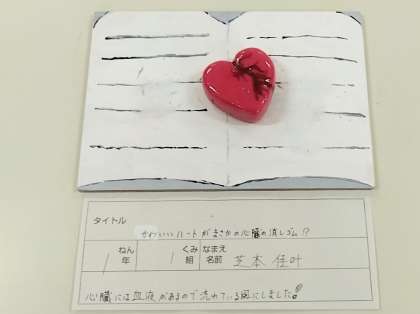 タイトル
かわいいハートがまさかの心臓の消しゴム!?
1 ねん年 1 くみ組 なまえ名前 芝本 佳叶
心臓には血液があるので流れている風にしました!!